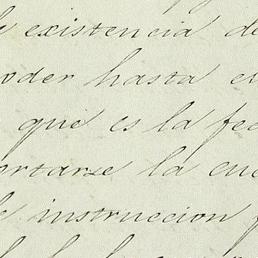 existencia de
oder hasta el
que es la fec
ortarse la cue
e instruccion